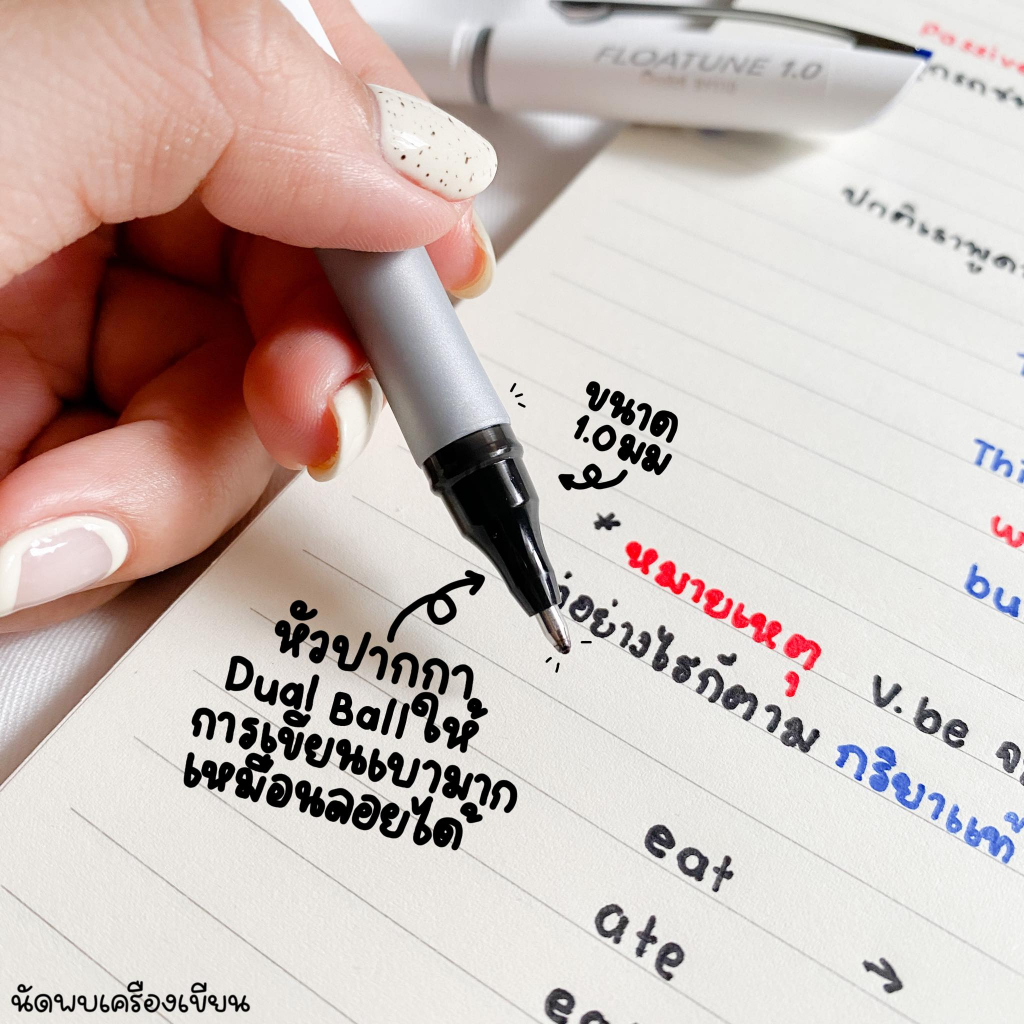 FLOATUNE 1.0
ปกติเราพูด
ขนาด
1.0 มม
* หมายเหตุ
bu
อย่างไรก็ตาม กริยาแท้
V.be
หัวปากกา
Dual Ball ให้
การเขียนเบามาก
เหมือนลอยได้
eat
ate
→
นัดพบเครื่องเขียน